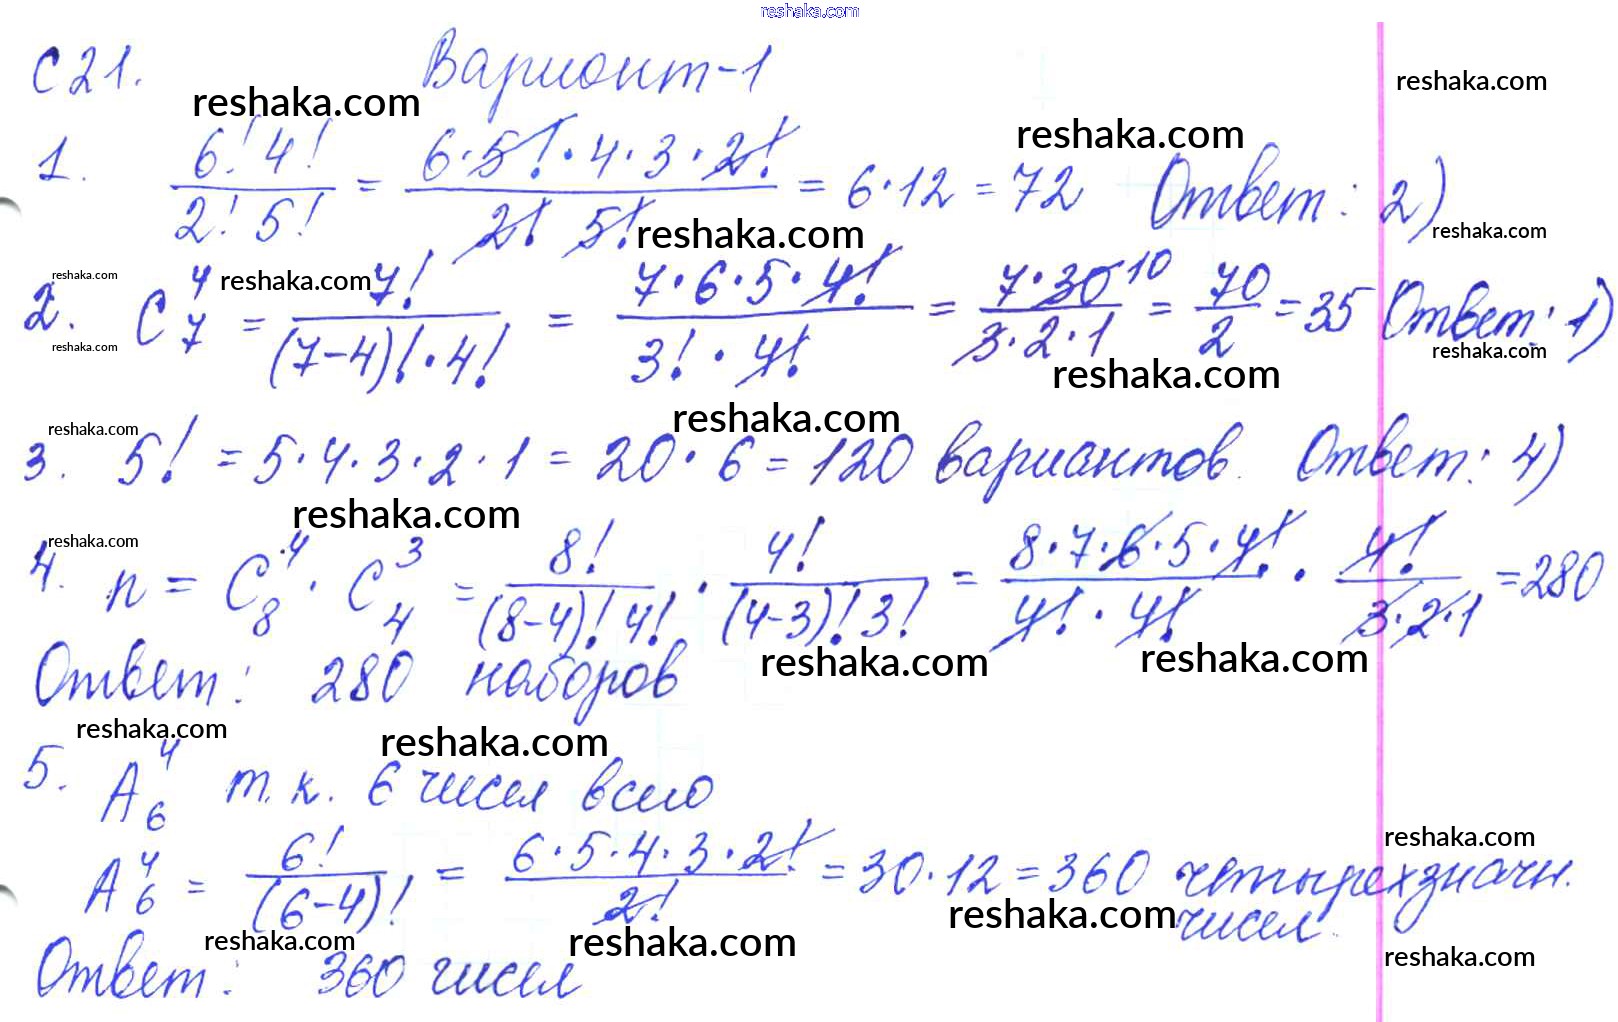 reshaka.com
С 21. Вариант-1
reshaka.com reshaka.com reshaka.com
1. 6! 4! / 2! 5! = 6·5!·4·3·2! / 2! 5! = 6·12 = 72 Ответ: 2)
reshaka.com reshaka.com
reshaka.com reshaka.com
2. C_7^4 = 7! / (7-4)!·4! = 7·6·5·4! / 3!·4! = 7·30 10 / 3·2·1 = 70 / 2 = 35 Ответ: 1)
reshaka.com reshaka.com reshaka.com
reshaka.com reshaka.com
3. 5! = 5·4·3·2·1 = 20·6 = 120 вариантов. Ответ: 4)
reshaka.com reshaka.com
4. n = C_8^4 · C_4^3 = 8! / (8-4)! 4! · 4! / (4-3)! 3! = 8·7·6·5·4! / 4!·4! · 4! / 3·2·1 = 280
Ответ: 280 наборов
reshaka.com reshaka.com
reshaka.com reshaka.com
5. A_6^4 т.к. 6 чисел всего
reshaka.com
A_6^4 = 6! / (6-4)! = 6·5·4·3·2! / 2! = 30·12 = 360 четырехзначн.
reshaka.com чисел.
reshaka.com reshaka.com reshaka.com
Ответ: 360 чисел